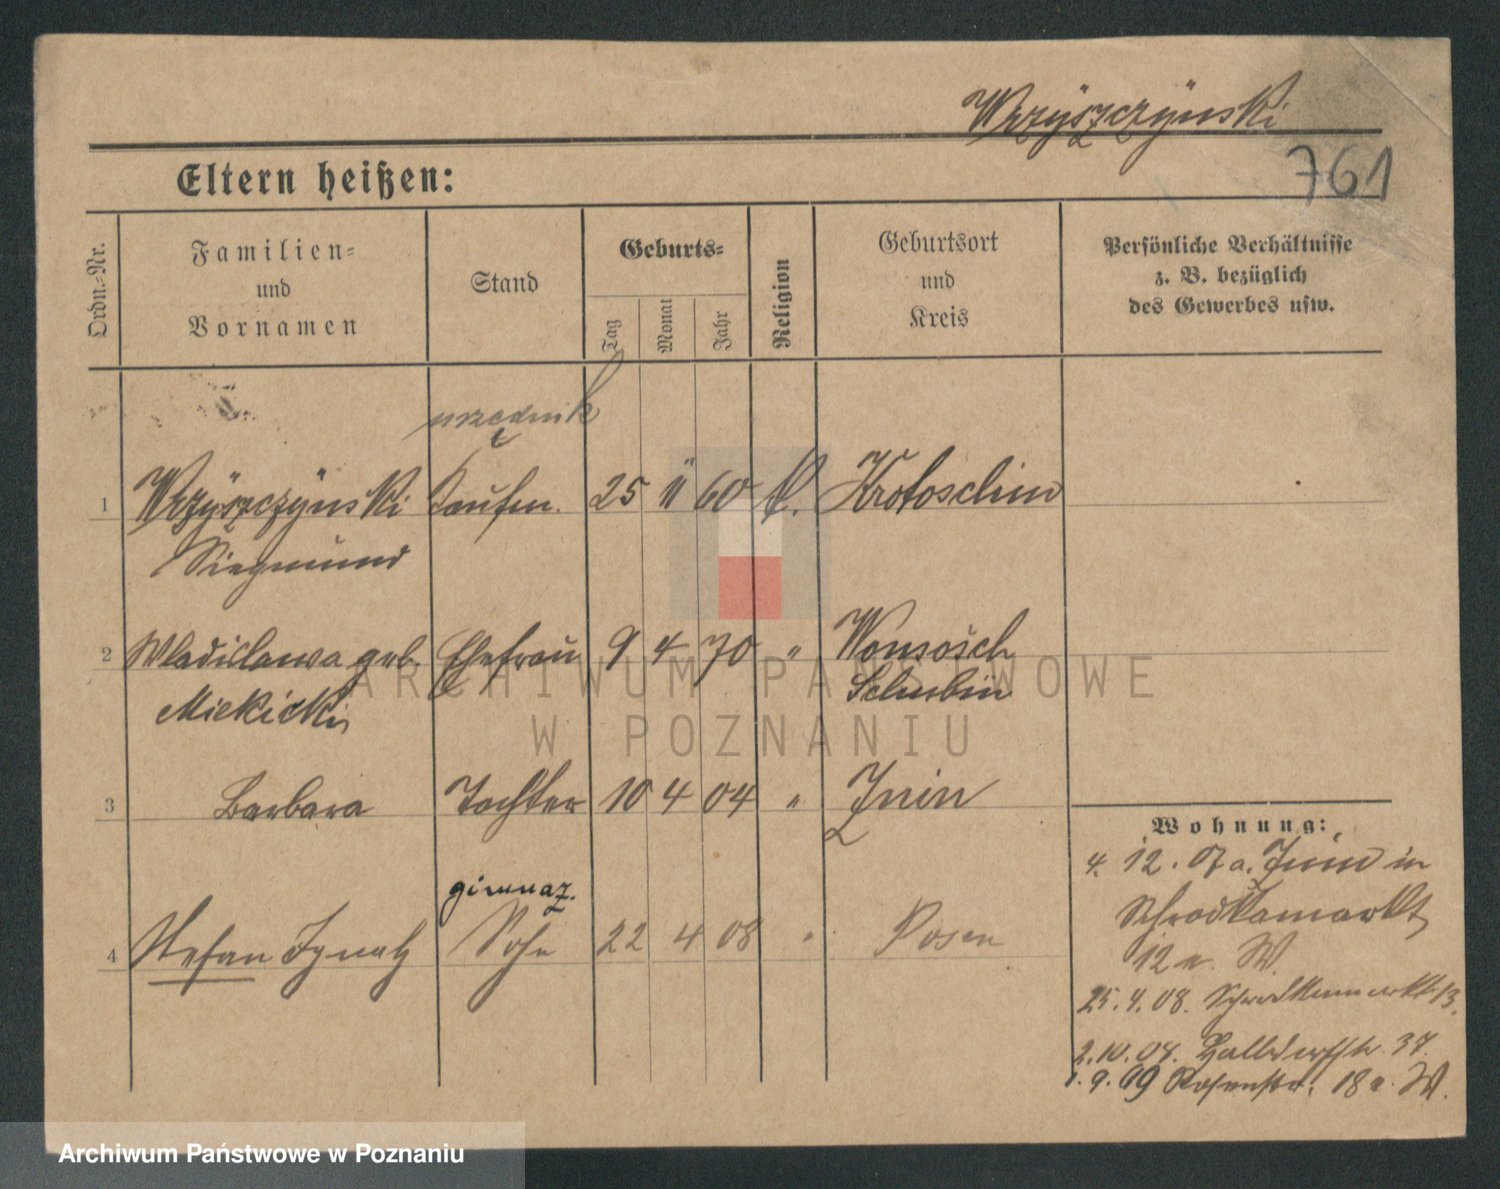 Wrzyszczynski
761
Eltern heißen:
Ordn.-Nr.
Familien-
und
Vornamen
Stand
Geburts-
Tag
Monat
Jahr
Religion
Geburtsort
und
Kreis
Persönliche Verhältnisse
z. B. bezüglich
des Gewerbes usw.
urzędnik
1 Wrzyszczynski Kaufm. 25 11 60 k. Krotoschin
Siegmund
2 Wladislawa geb. Ehefrau 9 4 70 " Wonsosch
Schubin
3 Barbara Tochter 10 4 04 " Znin
Wohnung:
4. 12. 07 a. Znin in
Schrodkamarkt
12 a. W.
gimnaz.
4 Stefan Ignatz Sohn 22 4 08 " Posen
25. 4. 08. Schrodkamarkt 13.
2. 10. 08. 37.
1. 9. 09 Rosenstr. 18 a. W.
ARCHIWUM PAŃSTWOWE
W POZNANIU
Archiwum Państwowe w Poznaniu